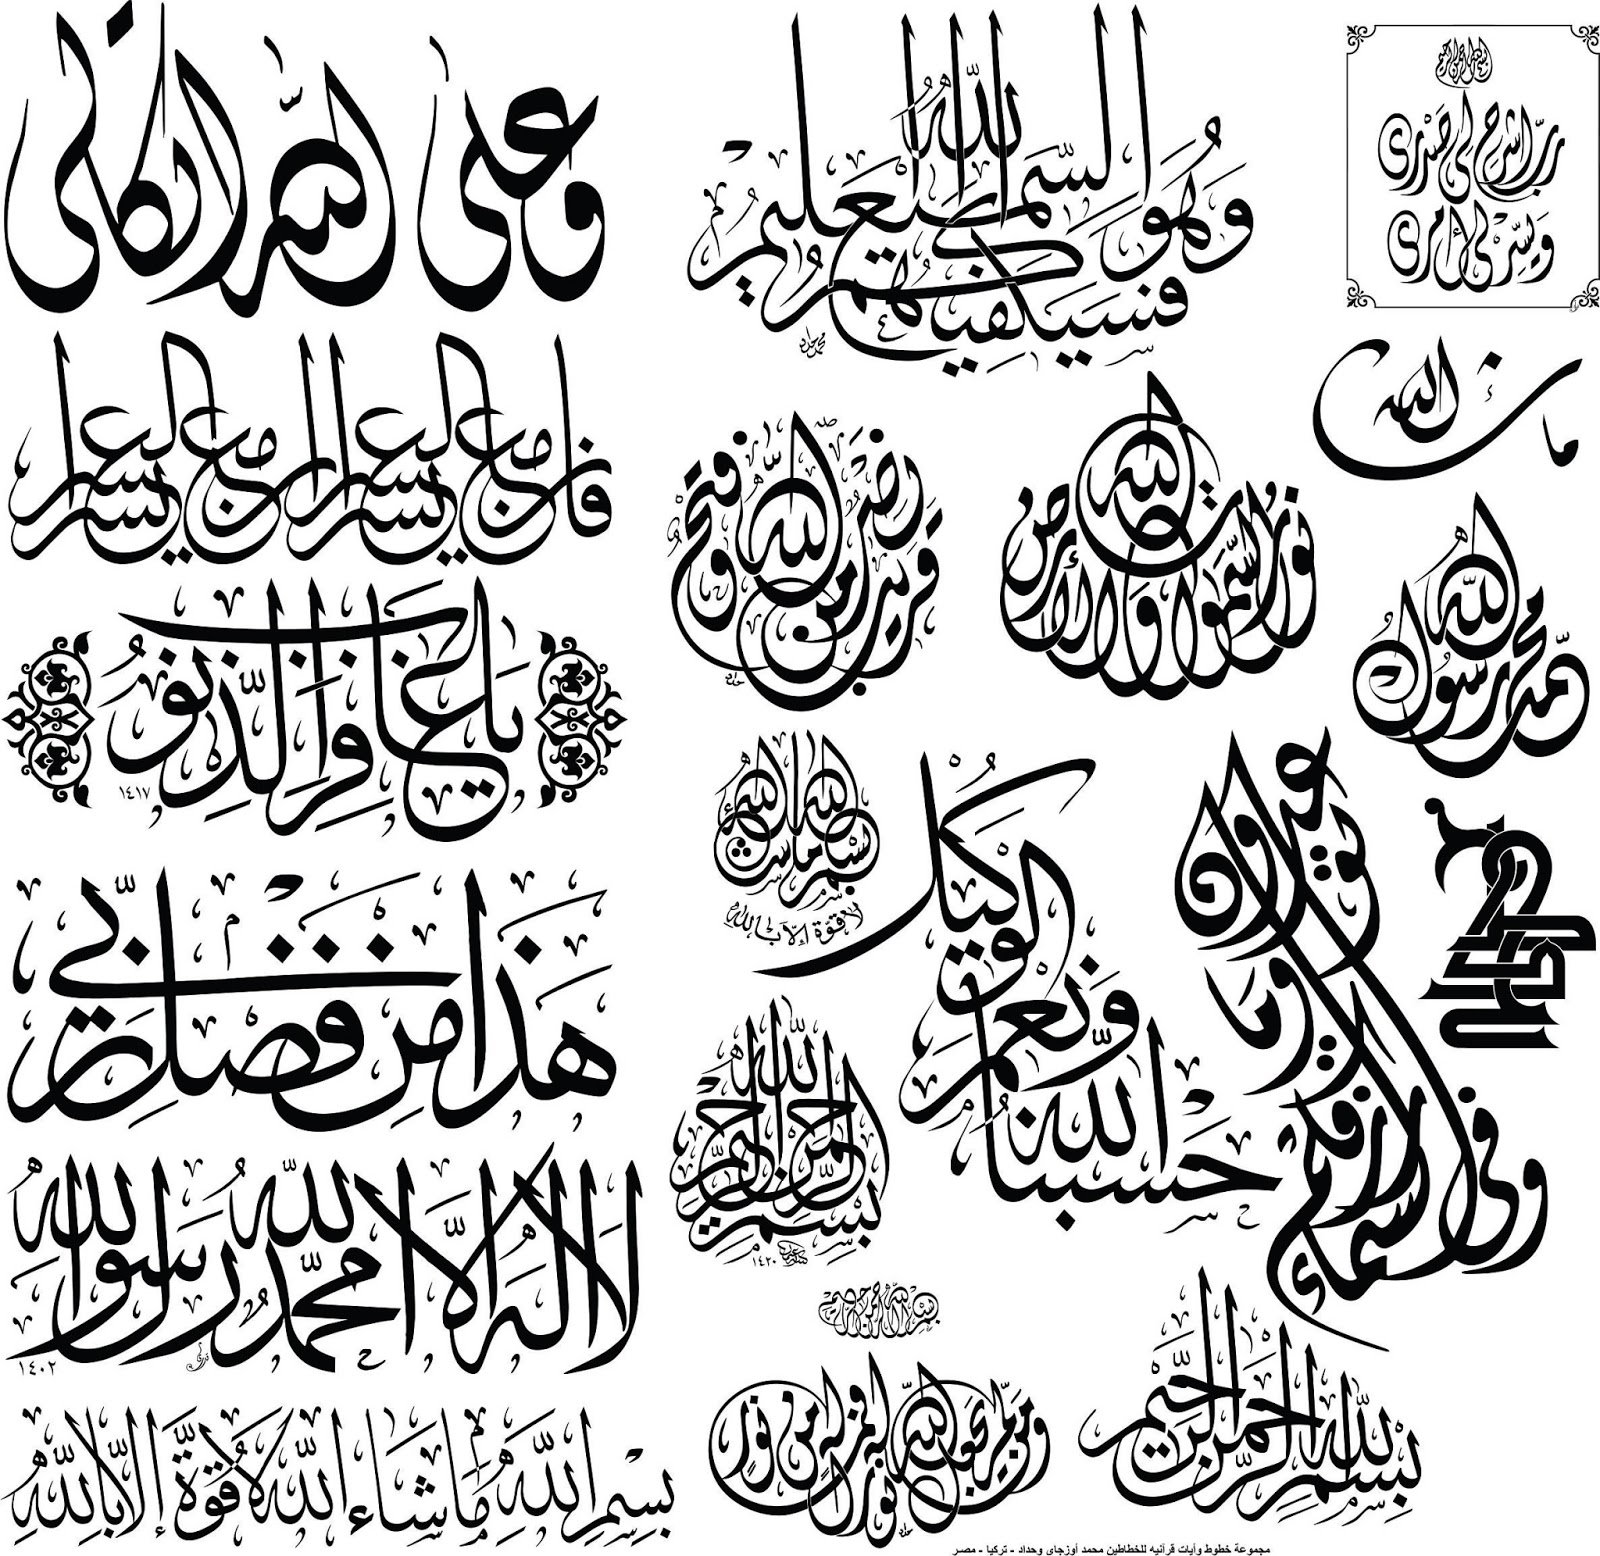 بسم الله الرحمن الرحيم
رب اشرح لي صدري
ويسر لي أمري
فسيكفيكهم الله
وهو السميع العليم
محمد حداد
وعلى الله اتكالي
ما شاء الله
فإن مع العسر يسرا إن مع العسر يسرا
نصر من الله وفتح قريب
حداد
الله نور السموات والأرض
محمد رسول الله
يا غافر الذنوب
١٤١٧
بسم الله ما شاء الله
لا قوة إلا بالله
حسبنا الله ونعم الوكيل
وفي السماء رزقكم وما توعدون
هذا من فضل ربي
بسم الله الرحمن الرحيم
١٤٢٠
لا اله الا الله محمد رسول الله
١٤٠٢
بسم الله الرحمن الرحيم
ومن لم يجعل الله له نورا فما له من نور
حداد
بسم الله الرحمن الرحيم
بسم الله ما شاء الله لا قوة إلا بالله
مجموعة خطوط وأيات قرآنيه للخطاطين محمد أوزجاى وحداد - تركيا - مصر